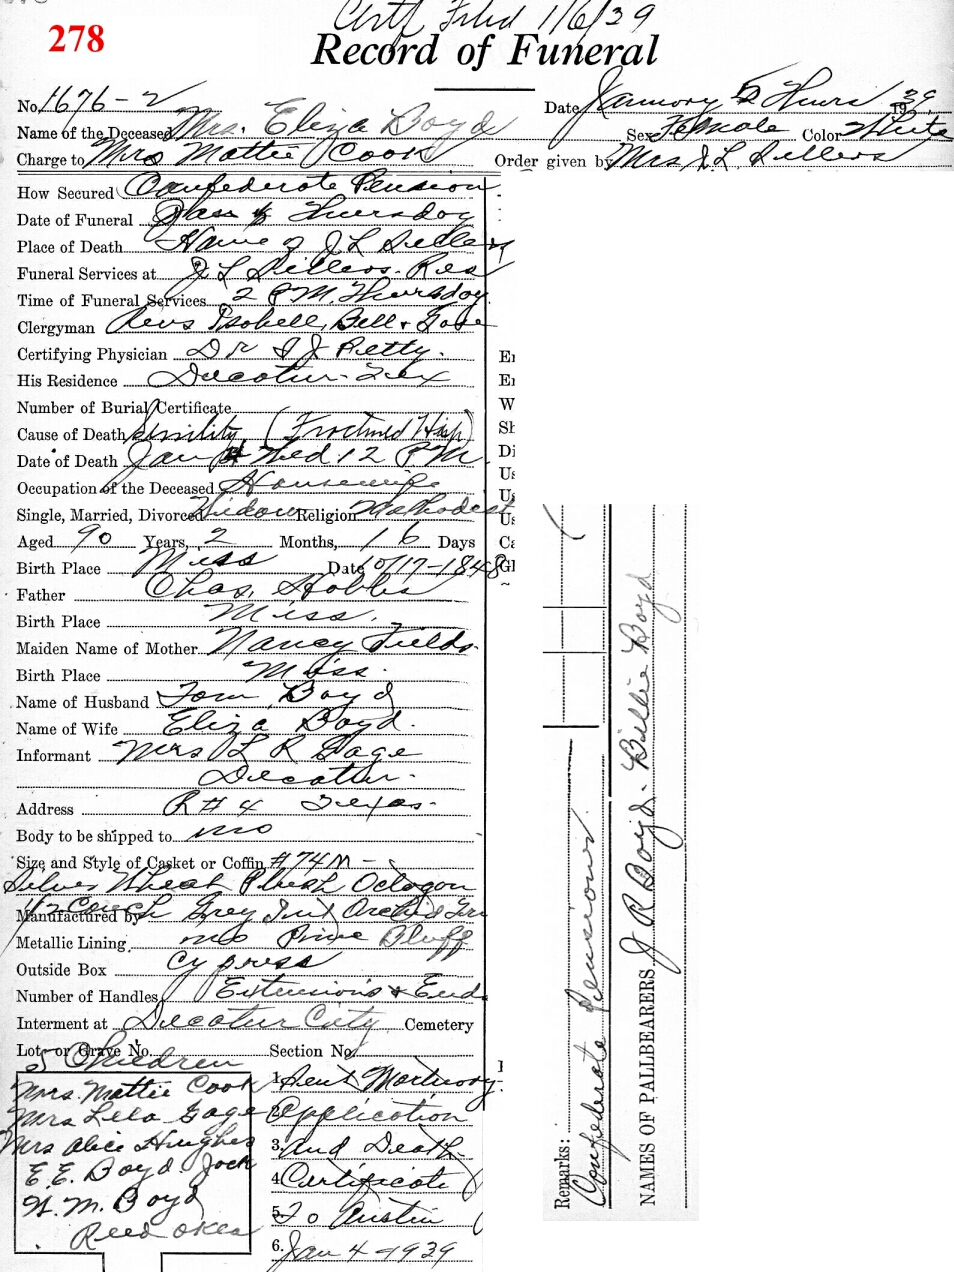 Certf Filed 1/6/39
278
Record of Funeral
No. 1676-2
Date January 5 Thurs 1939
Name of the Deceased Mrs. Eliza Boyd
Sex Female Color White
Charge to Mrs Mattie Cook
Order given by Mrs J L Sellers
How Secured Confederate Pension
Date of Funeral Jan 5 Thursday
Place of Death Home of J L Sellers
Funeral Services at J L Sellers. Res
Time of Funeral Services 2 P.M. Thursday
Clergyman Revs Isobell, Bell &
Certifying Physician Dr J Petty.
His Residence Decatur-Tex
Number of Burial Certificate
Cause of Death Senility (Froctured Hip)
Date of Death Jan 4 Wed. 12 P.M.
Occupation of the Deceased Housewife
Single, Married, Divorced Widow Religion Methodist
Aged 90 Years, 2 Months, 16 Days
Birth Place Miss Date 10/17-1848
Father Chas. Hobbs
Birth Place Miss.
Maiden Name of Mother Nancy Fields.
Birth Place Miss.
Name of Husband Tom Boyd
Name of Wife Eliza Boyd.
Informant Mrs L R Gage
Decatur.
Address R#4 Texas.
Body to be shipped to no
Size and Style of Casket or Coffin #74M-
Silver Wheat Plush Octogon
Manufactured by 1/2 Couch Grey Int Orchid
Metallic Lining no Pine Bluff
Outside Box Cypress
Number of Handles Extensions & Ends
Interment at Decatur City Cemetery
Lot or Grave No. Section No.
5 Children
Mrs. Mattie Cook
Mrs Lela Gage
Mrs Alice Hughes
E.E. Boyd. Jack
W. M. Boyd
Reed Okla
1. Sent Mortuary
2. Application
3. and Death
4. Certificate
5. To Austin
6. Jan 4-1939
Er
Er
W
Sh
Di
Us
Us
Us
Ca
Gl
Remarks:
Confederate Pensions.
NAMES OF PALLBEARERS J R Boyd. Billie Boyd